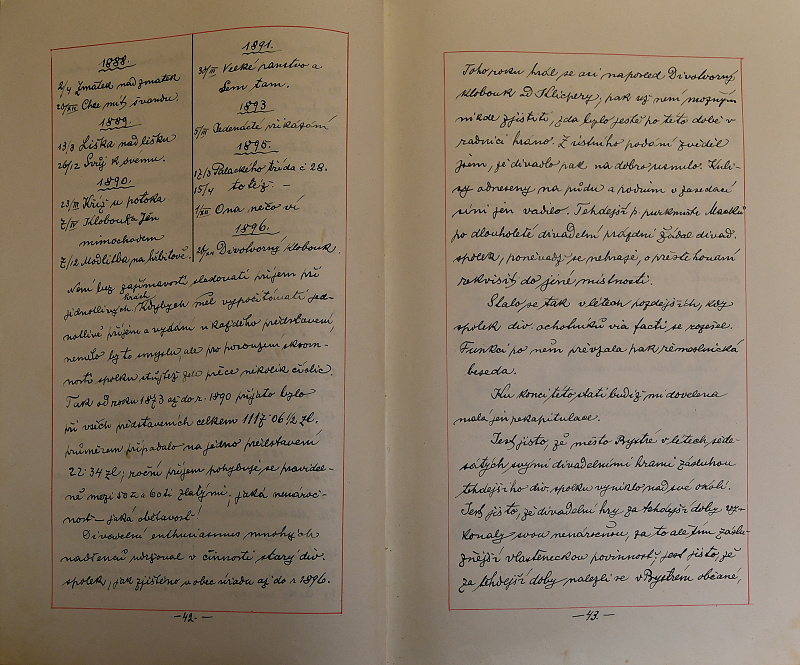 1888.
2/4 Zmatek nad zmatek
26/XII Chce míti švandu.
1889.
13/3 Liška nad lišku
26/12 Svůj k svému.
1890.
23/III Kříž u potoka
7/IV Klobouk a Jen
mimochodem
7/12 Modlitba na hřbitově.
1891.
30/III Veliké panstvo a
Sem tam.
1893
5/III Jedenácté přikázání
1895.
17/3 Palackého třída č 28.
15/4 totéž –
1/XII Ona něčo ví
1896.
26/XII Divotvorný klobouk.
Není bez zajímavosti sledovati příjem při
jednotlivých hrách. Kdybych měl vypočítávati jed-
notlivé příjem a vydání u každého představení,
nemělo by to smyslu, ale pro porozum skrom-
nosti spolku stůjtež zde přece několik číslic.
Tak od roku 1873 až do r. 1890 přijato bylo
při všech představeních celkem 1117·06 1/2 zl.
průměrem připadalo na jedno představení
22·34 zl; roční příjem pohybuje se pravidel-
ně mezi 50 a 60ti zlatými. jaká nenároč-
nost – jaká obětavost!
Divadelní enthusiasmus mnohých
nadšenců udržoval v činnosti starý div.
spolek, jak zjištěno u obec. úřadu až do r 1896.
– 42. –
Toho roku hrál se asi naposled Divotvorný
klobouk od Klicpery, pak už není možným
nikde zjistiti, zda bylo ještě po této době v
radnici hráno. Z ústního podání zvěděl
jsem, že divadlo pak na dobro usnulo. Kuli-
sy odneseny na půdu a podium v zasedací
síni jen vadilo. Tehdejší p. purkmistr
po dlouholeté divadelní prázdni žádal divad.
spolek, poněvadž se nehraje, o přestěhování
rekvisit do jiné místnosti.
Stalo se tak v létech pozdějších, kdy
spolek div. ochotníků via facti se rozešel.
Funkci po něm převzala pak řemeslnická
beseda.
Ku konci této stati budiž mi dovolena
malá jen rekapitulace.
Jest jisto, že město Bystré v létech sede-
sátých svými divadelními hrami zásluhou
tehdejšího div. spolku vyniklo nad své okolí.
Jest jisto, že divadelní hry za tehdejší doby vy-
konaly svou nenáročnou, za to ale tím záslu-
žnější vlasteneckou povinnost, jest jisto, že
za tehdejší doby nalezli se v Bystrém občané,
– 43. –